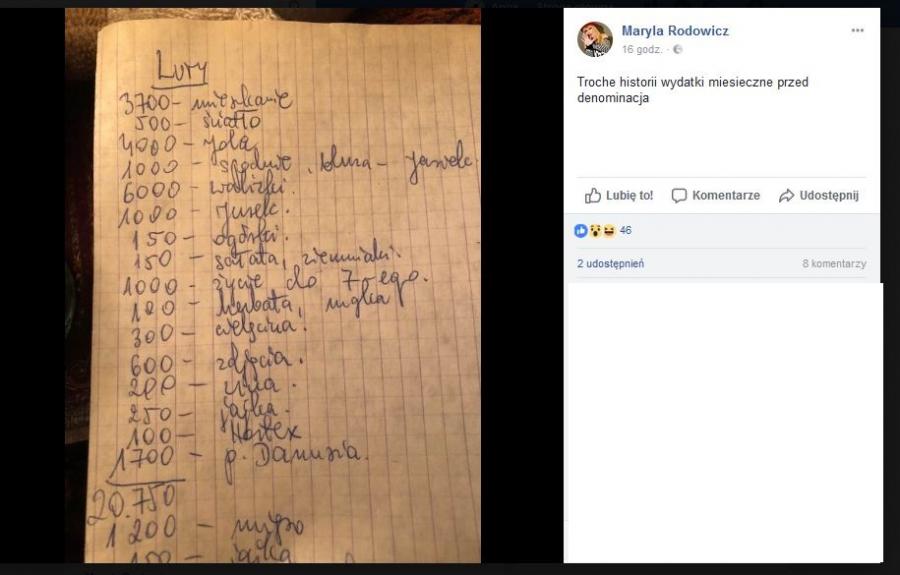 Luty
3700 - mieszkanie
500 - światło
4000 - Jola,
1000 - spodnie, bluza - Jasiek
6000 - walizki.
1000 - Jusek.
150 - ogórki.
150 - sałata, ziemniaki.
1000 - życie do 7-ego.
100 - herbata,
300 - cielęcina.
600 - zdjęcia.
200 -
250 - jajka.
100 - Hortex
1700 - p. Danusia.
20.750
1200 - mięso
150 - jajka
Maryla Rodowicz
16 godz.
Troche historii wydatki miesieczne przed
denominacja
Lubię to! Komentarze Udostępnij
46
2 udostępnień 8 komentarzy